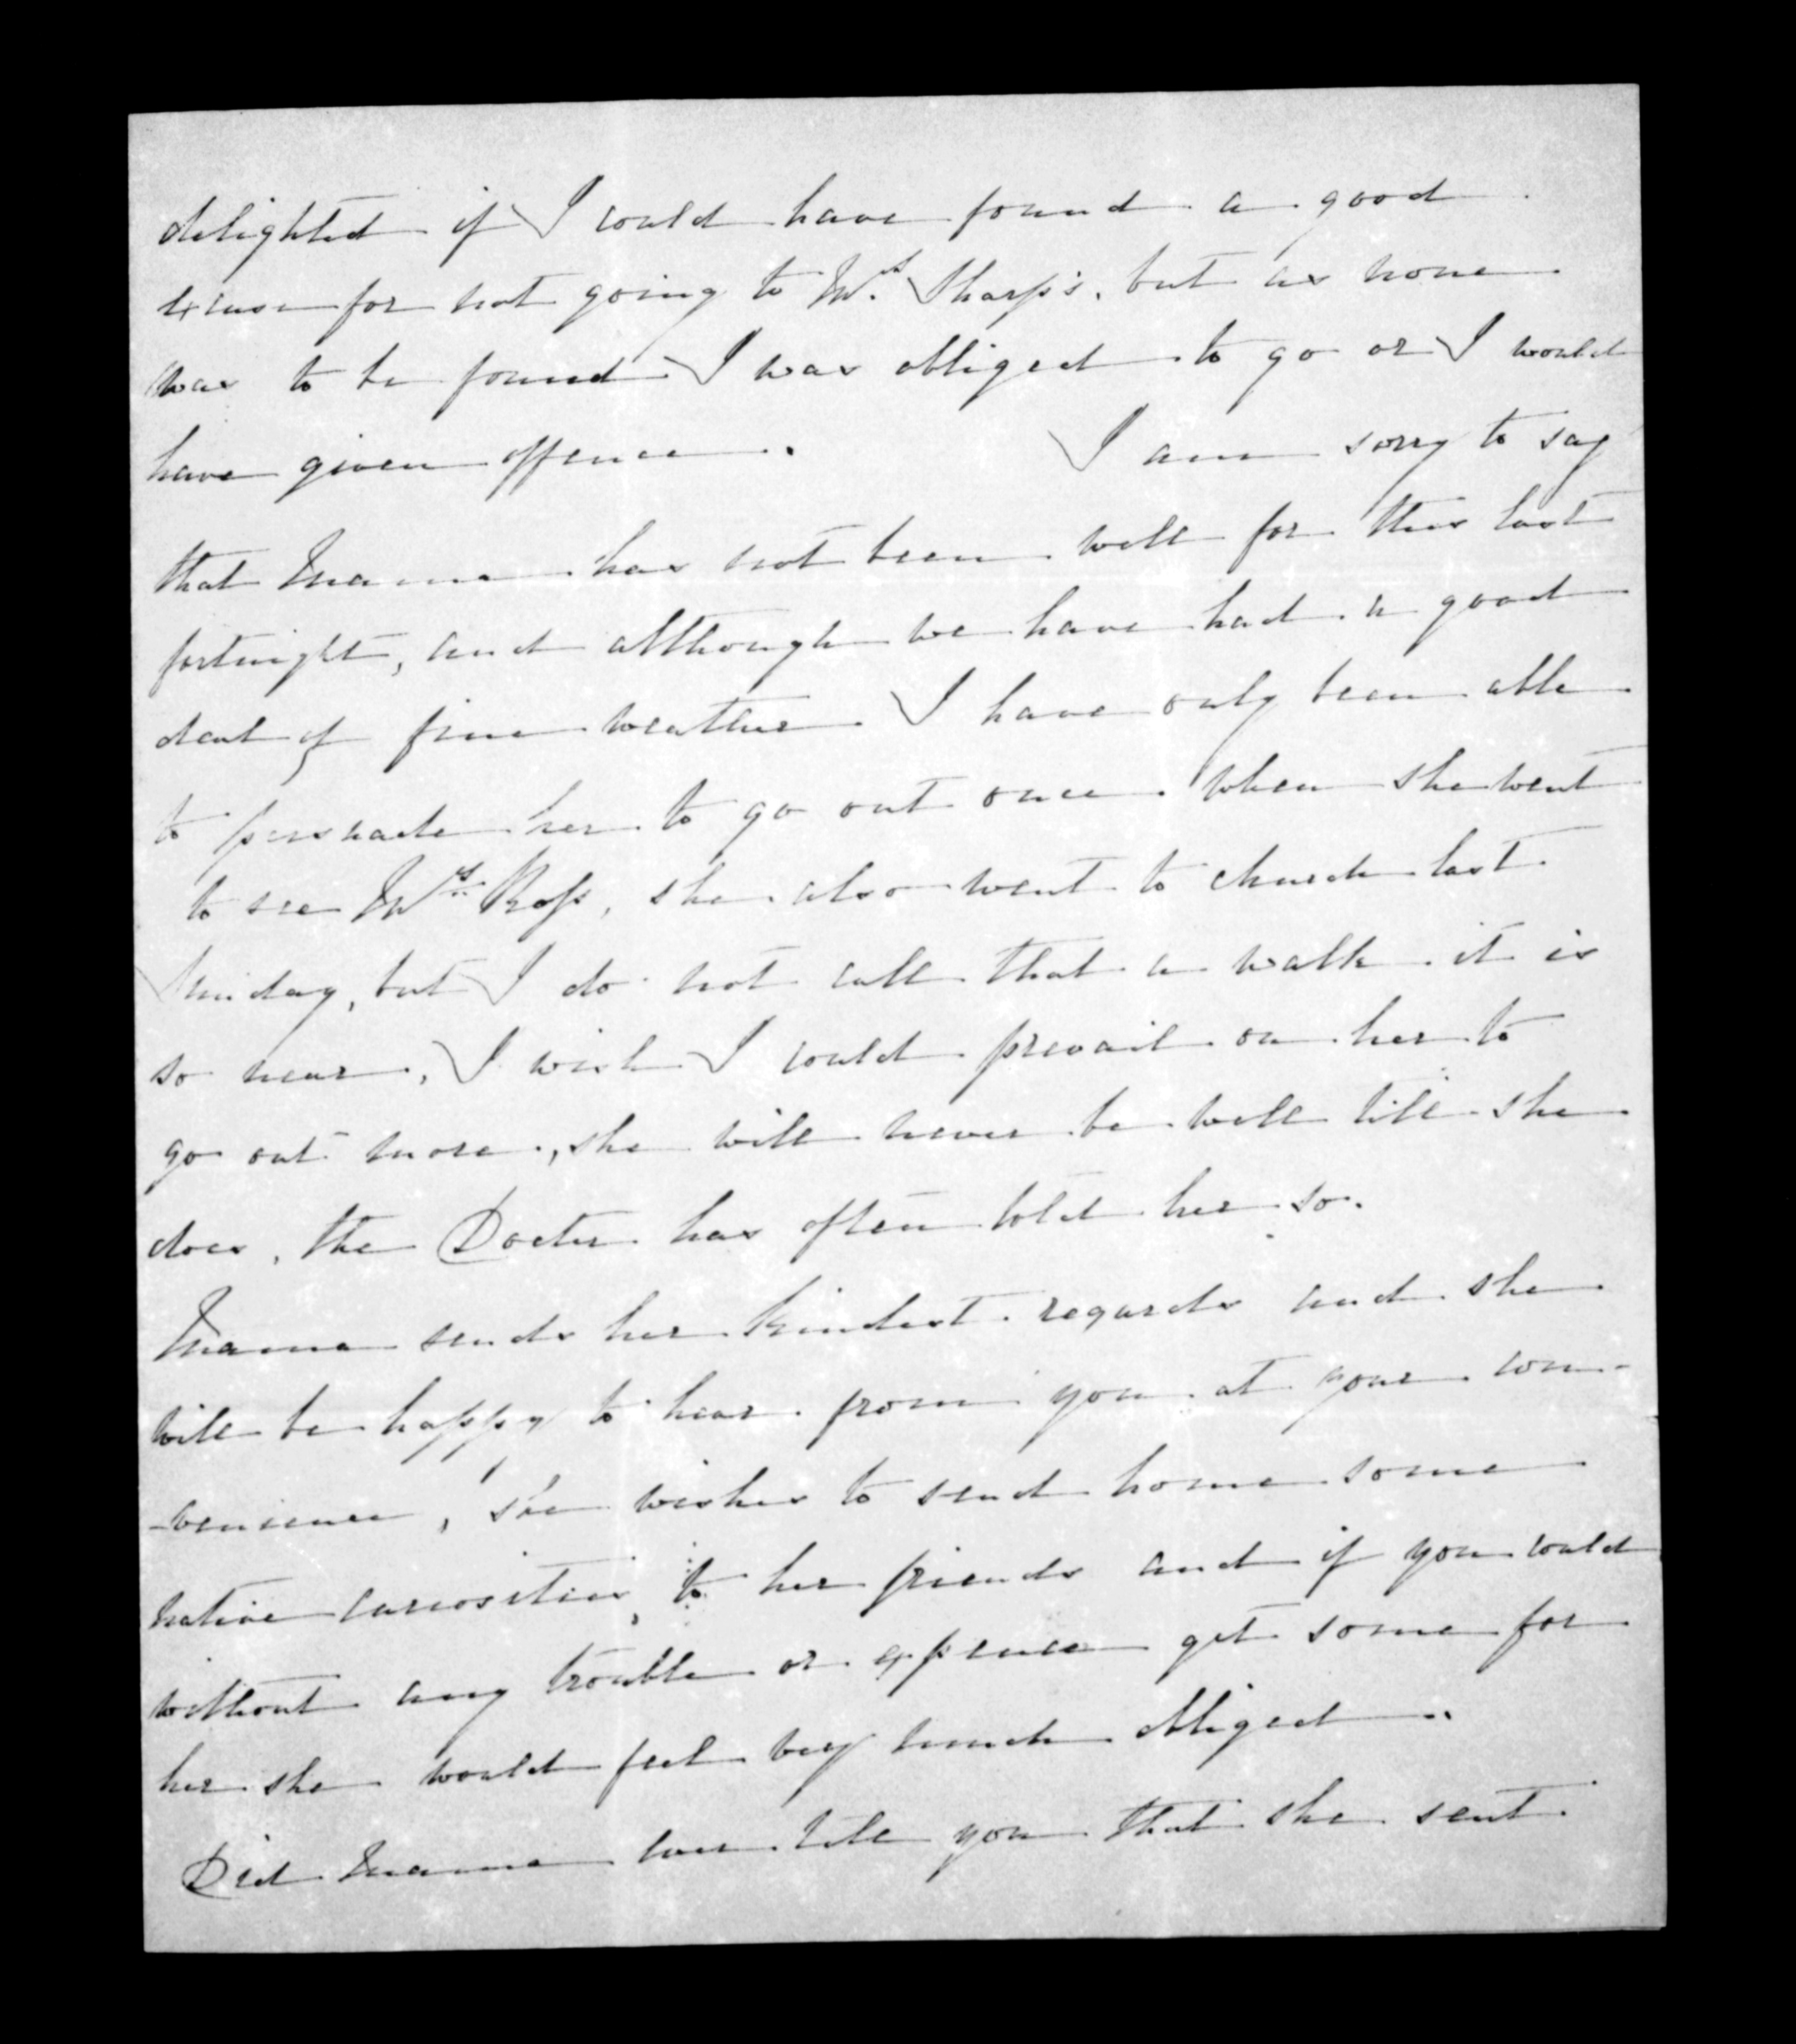 delighted if I could have found a good
excuse for not going to Mrs. Sharp's, but as none
was to be found I was obliged to go or I would
have given offence. I am sorry to say
that Mama has not been well for this last
fortnight, and although we have had a good
deal of fine weather I have only been able
to persuade her to go out once when she went
to see Mrs Ross, she also went to church last
Sunday, but I do not call that a walk it is
so near, I wish I could prevail on her to
go out more, she will never be well till she
does, the Doctor has often told her so.
Mama sends her kindest regards and she
will be happy to hear from you at your con-
-venience, she wishes to send home some
native curiosities, to her friends and if you could
without any trouble or expence get some for
her she would feel very much obliged.
Did Mama ever tell you that she sent